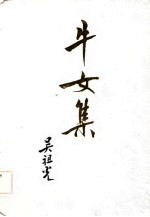 牛女集
吴祖光